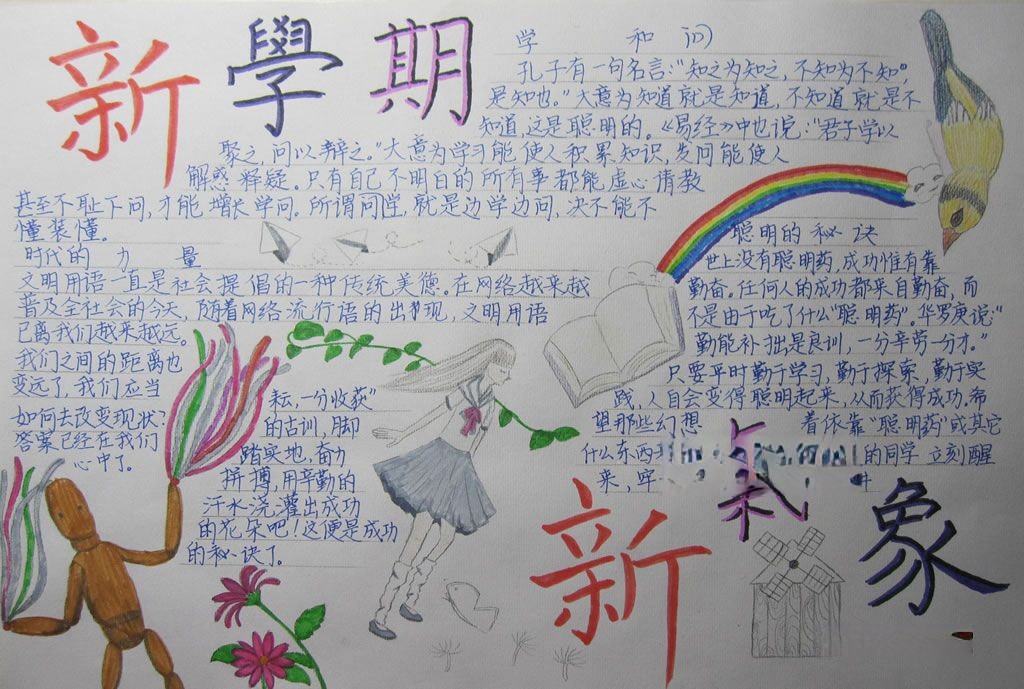 新學期
学 和 问
孔子有一句名言:“知之为知之,不知为不知,
是知也。”大意为知道就是知道,不知道就是不
知道,这是聪明的。《易经》中也说:“君子学以
聚之,问以辩之。”大意为学习能使人积累知识,发问能使人
解惑释疑。只有自己不明白的所有事都能虚心请教
甚至不耻下问,才能增长学问。所谓问学,就是边学边问,决不能不
懂装懂。
时代的 力 量
文明用语一直是社会提倡的一种传统美德。在网络越来越
普及全社会的今天,随着网络流行语的出现,文明用语
已离我们越来越远。
我们之间的距离也
变远了,我们应当
如何去改变现状?
答案已经在我们
心中了。
聪明的秘诀
世上没有聪明药,成功惟有靠
勤奋。任何人的成功都来自勤奋,而
不是由于吃了什么“聪明药”。华罗庚说:“
勤能补拙是良训,一分辛劳一分才。”
只要平时勤于学习,勤于探索,勤于实
践,人自会变得聪明起来,从而获得成功。希
望那些幻想 着依靠“聪明药”或其它
什么东西 的同学立刻醒
来,牢
耘,一分收获”
的古训,脚
踏实地,奋力
拼搏,用辛勤的
汗水浇灌出成功
的花朵吧!这便是成功
的秘诀了。
新氣象